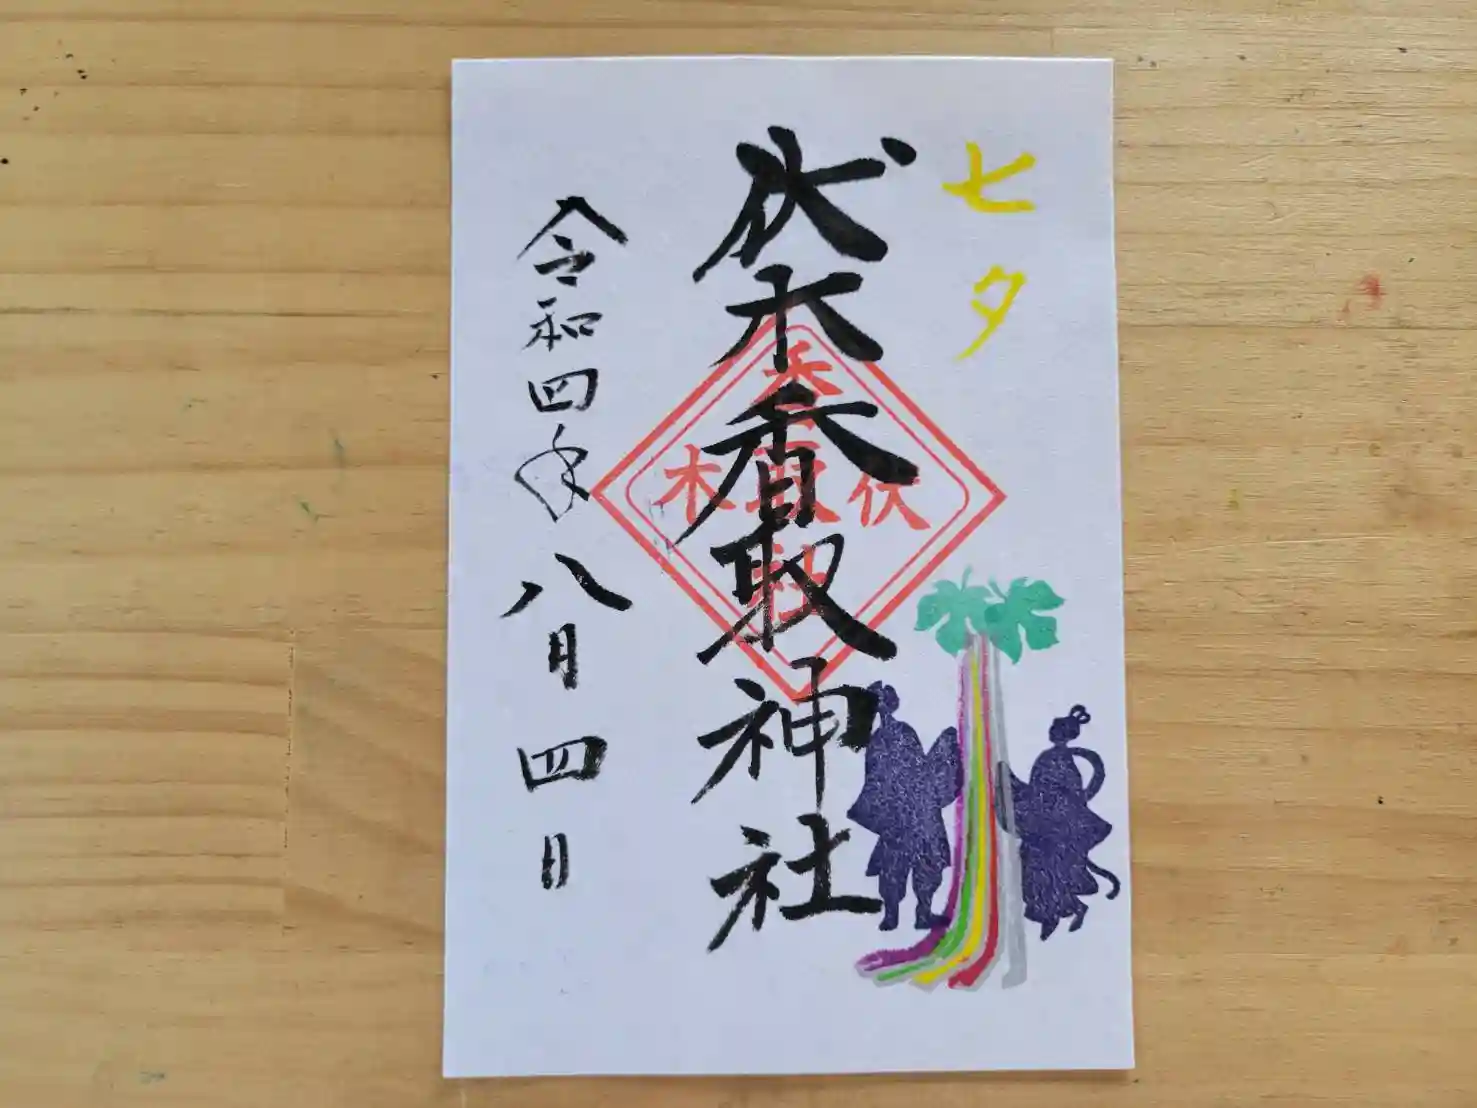 七夕
伏木香取神社
伏木
香取
社
令和四年八月四日